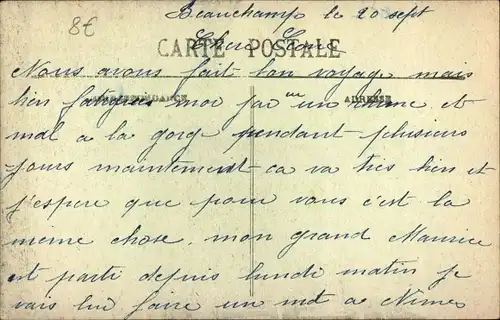 8€
Beauchamp le 20 sept
CARTE POSTALE
Chere
Nous avons fait bon voyage mais
bien fatigués moi j'ai eu un rhume et
CORRESPONDANCE ADRESSE
mal a la gorge pendant plusieurs
jours maintenant ca va tres bien et
j'espere que pour vous c'est la
meme chose. mon grand Maurice
est parti depuis lundi matin je
vais lui faire un mot a Nimes